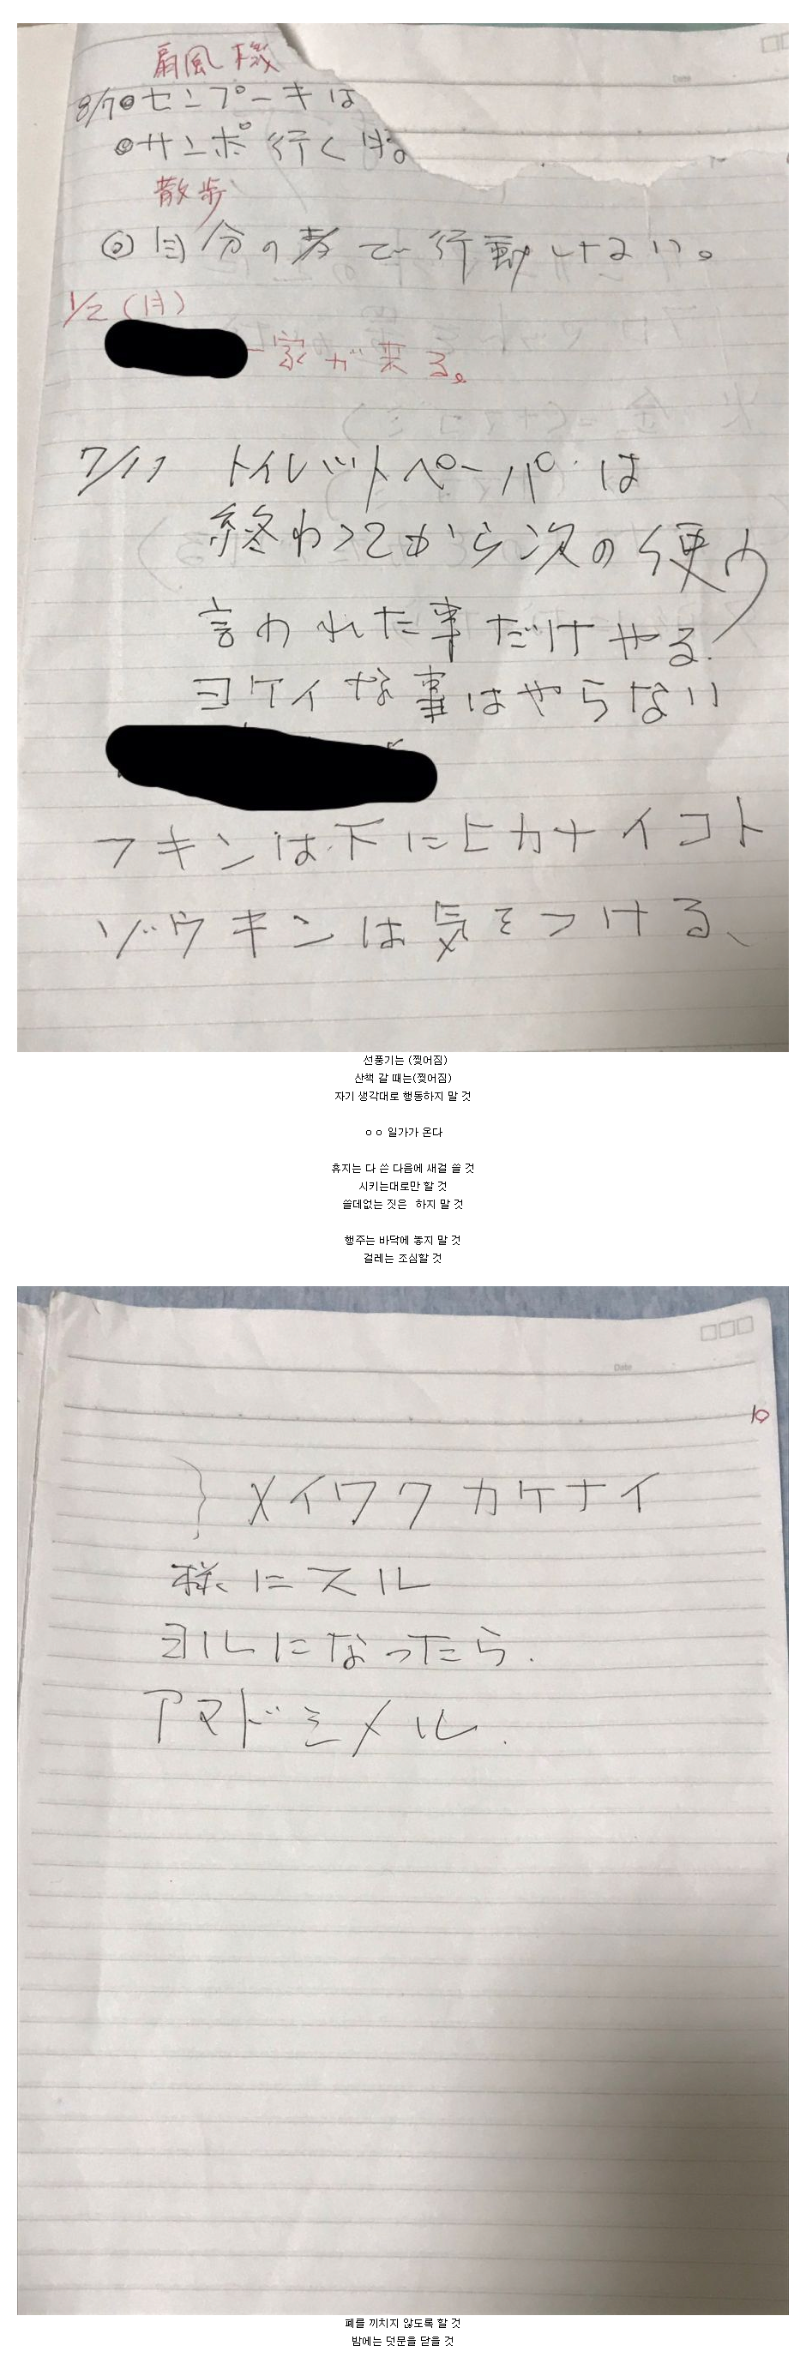 扇風機
8/7◎センプーキは
◎サンポ行くは。
散歩
◎自分の考で行動しない。
1/2(月)
一家が来る。
7/17 トイレットペーパーは
終わってから次の使う
言われた事だけやる.
ヨケイな事はやらない
フキンは下にヒカナイコト
ゾウキンは気をつける、
선풍기는 (찢어짐)
산책 갈 때는(찢어짐)
자기 생각대로 행동하지 말 것
ㅇㅇ 일가가 온다
휴지는 다 쓴 다음에 새걸 쓸 것
시키는대로만 할 것
쓸데없는 짓은 하지 말 것
행주는 바닥에 놓지 말 것
걸레는 조심할 것
Date
10
} メイワクカケナイ
様にスル
ヨルになったら.
アマドシメル.
폐를 끼치지 않도록 할 것
밤에는 덧문을 닫을 것